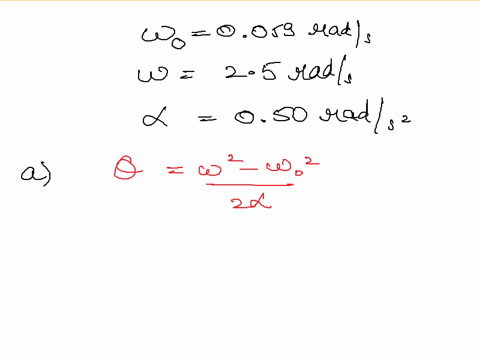 ω₀ = 0.059 rad/s
ω = 2.5 rad/s
α = 0.50 rad/s²
a) θ = (ω² - ω₀²)/2α